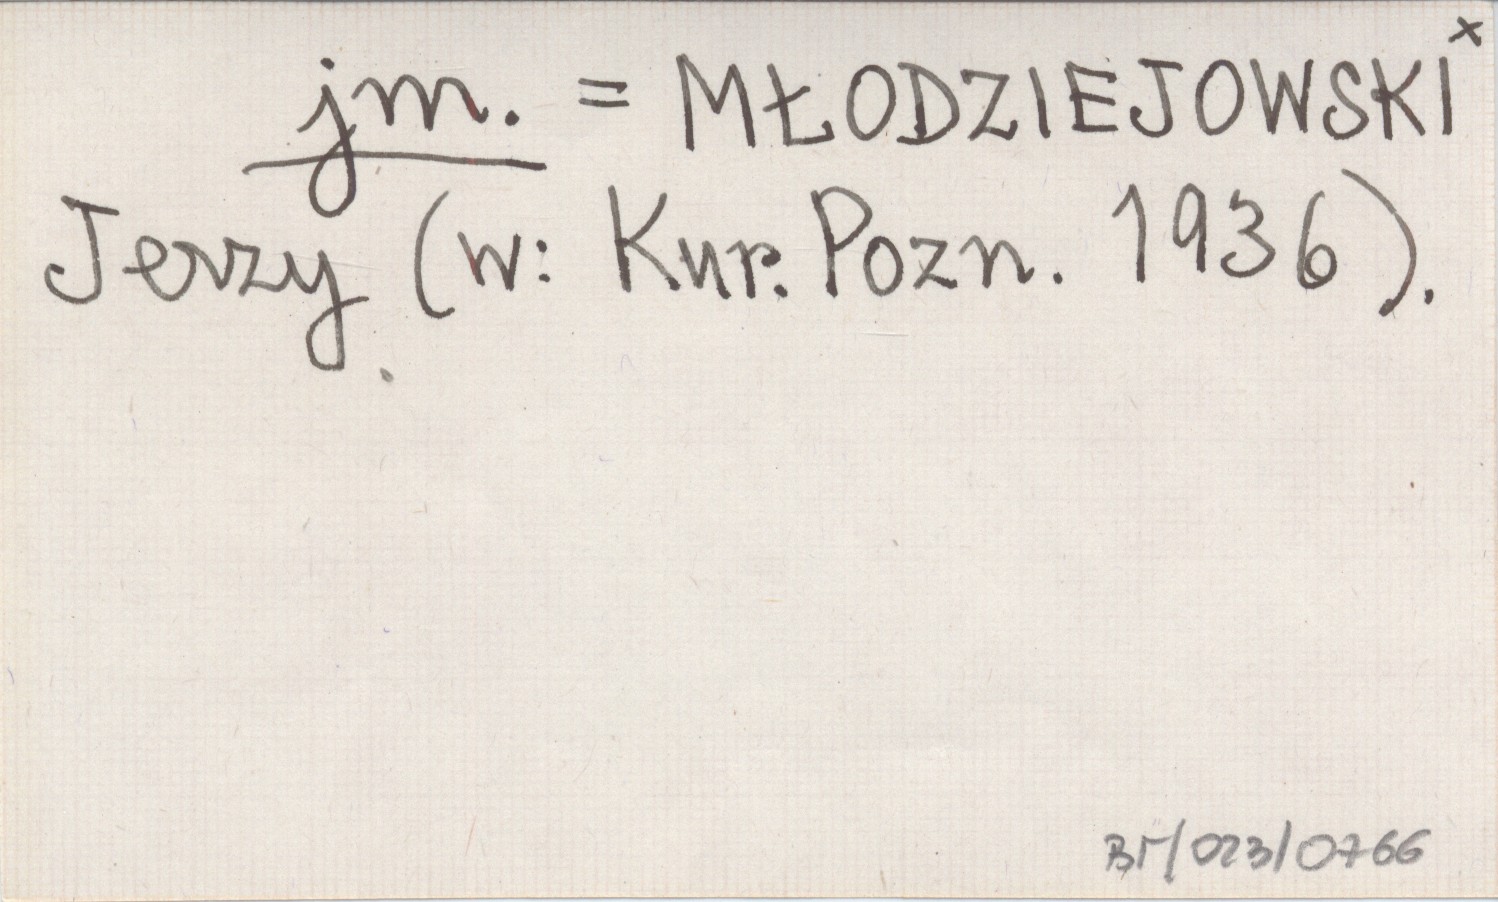 jm. = MŁODZIEJOWSKI x
Jerzy (w: Kur. Pozn. 1936).
BΓ/023/0766